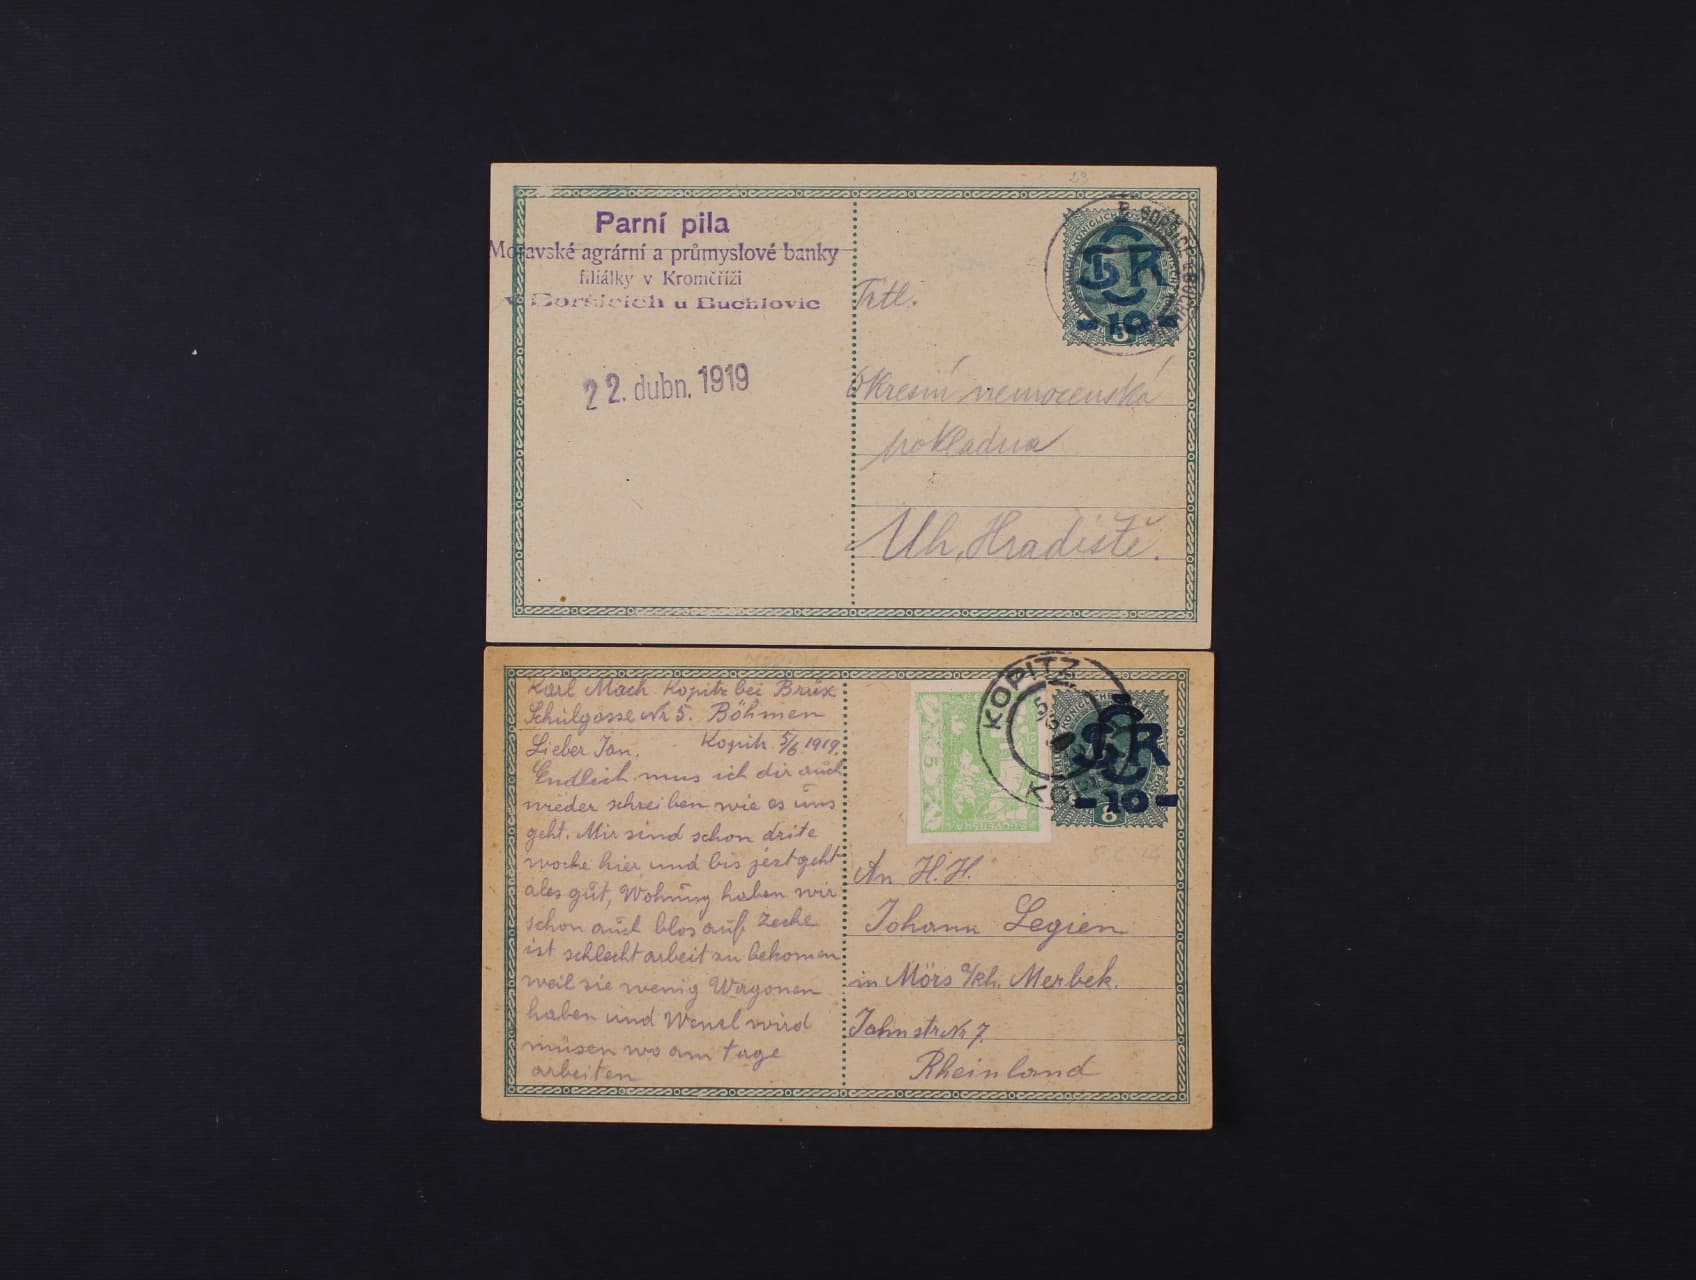 Parní pila
Moravské agrární a průmyslové banky
filiálky v Kroměříži
v Boršicích u Buchlovic
22. dubn. 1919
23
ČSR
-10-
Titl.
Okresní nemocenská
pokladna
Uh. Hradiště.
Karl Mach Kopitz bei Brüx
Schulgasse Nr 5. Böhmen
Kopitz 5/6 1919.
Lieber Jan.
Endlich mus ich dir auch
wieder schreiben wie es uns
geht. Mir sind schon drite
woche hier und bis jezt geht
ales gut, Wohnung haben wir
schon auch blos auf Zeche
ist schlecht arbeit zu bekomen
weil sie wenig Wagonen
haben und Wenzl wird
müsen wo am tage
arbeiten
KOPITZ
5
ČSR
-10-
8
An H.H.
Johann Legien
in Mörs a/Rh. Merbek.
Jahnstr Nr 7.
Rheinland